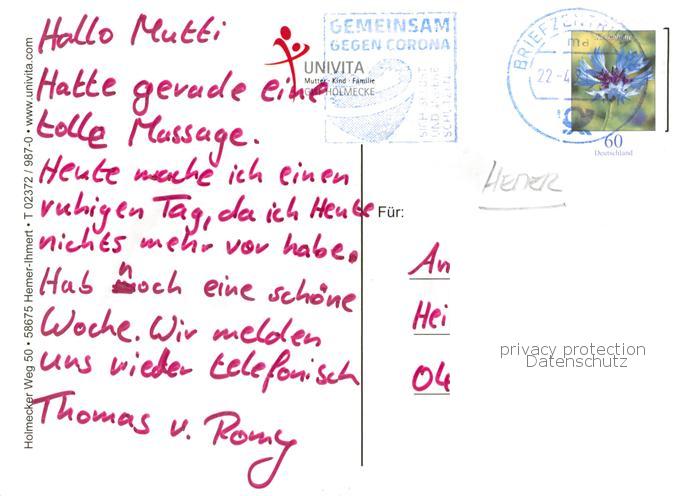 Hallo Mutti
Hatte gerade eine
tolle Massage.
Heute mache ich einen
ruhigen Tag, da ich Heute
nichts mehr vor habe.
Hab noch eine schöne
Woche. Wir melden
uns wieder telefonisch
Thomas u. Romy
Holmecker Weg 50 • 58675 Hemer-Ihmert • T 02372 / 987-0 • www.univita.com
UNIVITA
Mutter · Kind · Familie
GUT HOLMECKE
GEMEINSAM
GEGEN CORONA
SICH SELBST
UND ANDERE
SCHÜTZEN
BRIEFZENTRUM
ma
22-4
60
Deutschland
HEMER
Für:
An
Hei
Ol
privacy protection
Datenschutz